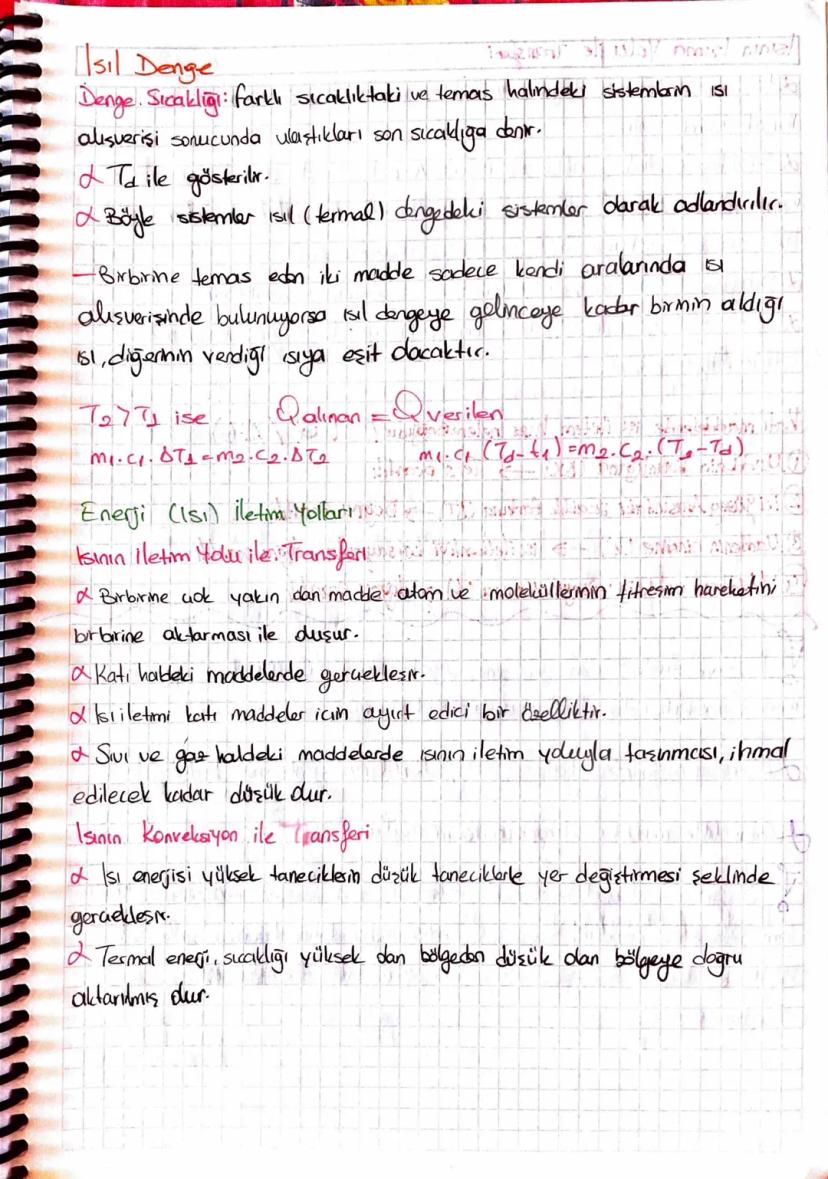 Isıl Denge
Denge Sıcaklığı: farklı sıcaklıktaki ve temas halindeki sistemlerin ısı
alışverişi sonucunda ulaştıkları son sıcaklığa denir.
α Td ile gösterilir.
α Böyle sistemler ısıl (termal) dengedeki sistemler olarak adlandırılır.
— Birbirine temas eden iki madde sadece kendi aralarında ısı
alışverişinde bulunuyorsa ısıl dengeye gelinceye kadar birinin aldığı
ısı, diğerinin verdiği ısıya eşit olacaktır.
T2>T1 ise Qalınan = Qverilen
m1.c1.ΔT1=m2.c2.ΔT2 m1.c1 (Td-t1)=m2.c2.(T2-Td)
Enerji (Isı) İletim Yolları
Isının İletim Yolu ile Transferi
α Birbirine çok yakın olan madde atom ve moleküllerinin titreşim hareketini
birbirine aktarması ile oluşur.
α Katı haldeki maddelerde gerçekleşir.
α Isı iletimi katı maddeler için ayırt edici bir özelliktir.
α Sıvı ve gaz haldeki maddelerde ısının iletim yoluyla taşınması, ihmal
edilecek kadar düşük olur.
Isının Konveksiyon ile Transferi
α Isı enerjisi yüksek taneciklerin düşük taneciklerle yer değiştirmesi şeklinde
gerçekleşir.
α Termal enerji, sıcaklığı yüksek olan bölgeden düşük olan bölgeye doğru
aktarılmış olur.